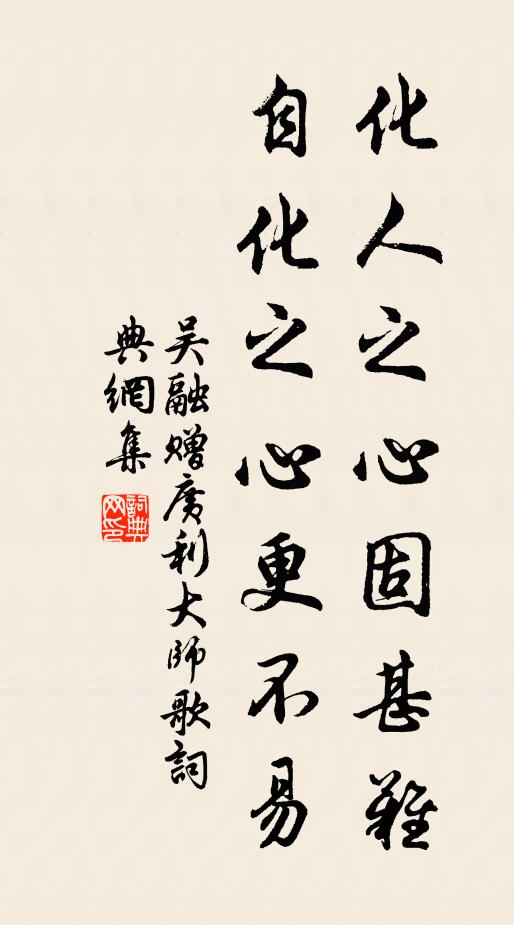 化人之心固甚難
自化之心更不易
吴融赠廣利大師歌詞
典網集
詞典
网印